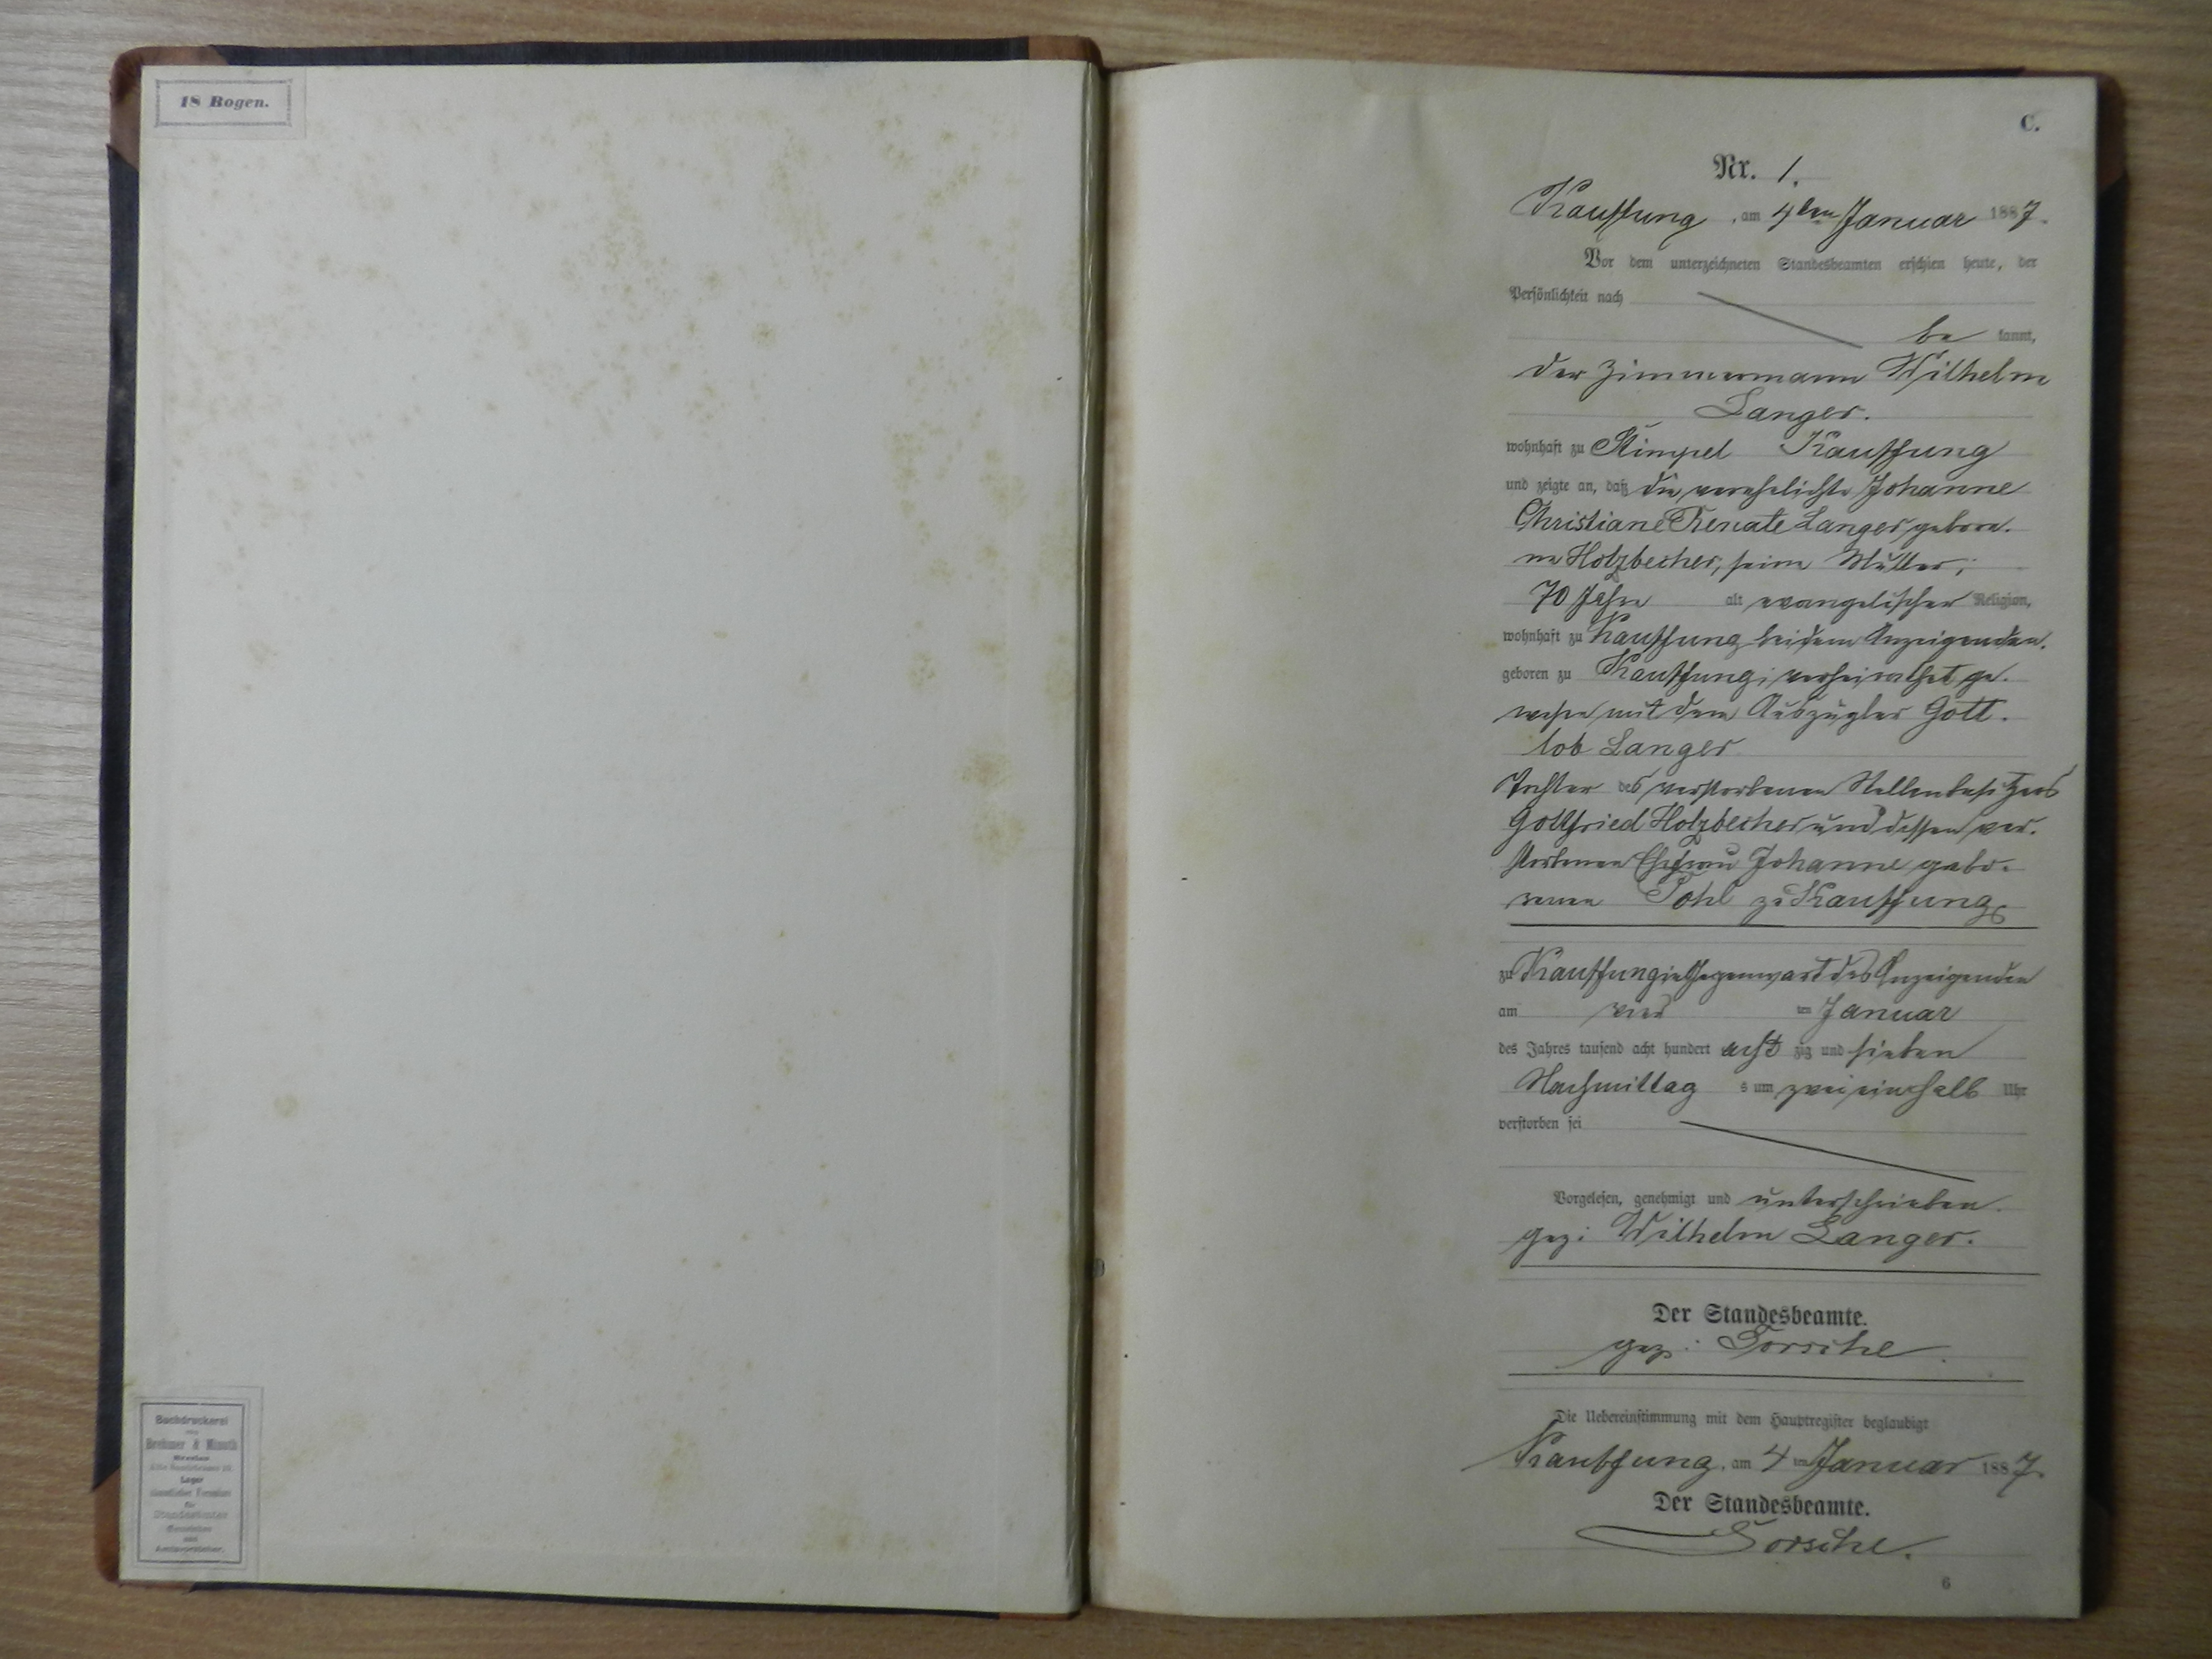 18 Bogen.
Buchdruckerei
von
Brehmer & Minuth
Breslau
Lager
sämtlicher Formulare
für
Standesämter
Gemeinden
und
Amtsvorsteher.
C.
Nr. 1.
Kauffung, am 4ten Januar 1887.
Vor dem unterzeichneten Standesbeamten erschien heute, der
Persönlichkeit nach
be kannt,
der Zimmermann Wilhelm
Langer.
wohnhaft zu Kauffung
und zeigte an, daß die verehelichte Johanne
Christiane Renate Langer gebore-
ne Holzbecher, seine Mutter,
70 Jahre alt evangelischer Religion,
wohnhaft zu Kauffung bei dem Anzeigenden.
geboren zu Kauffung, verheirathet ge-
wesen mit dem Auszügler Gott-
lob Langer
Tochter des verstorbenen Stellenbesitzers
Gottfried Holzbecher und dessen ver-
storbenen Ehefrau Johanne gebo-
renen Pohl zu Kauffung
zu Kauffung in Gegenwart des Anzeigenden
am vier ten Januar
des Jahres tausend acht hundert acht zig und sieben
Nachmittag s um zwei ein halb Uhr
verstorben sei
Vorgelesen, genehmigt und unterschrieben.
gez: Wilhelm Langer.
Der Standesbeamte.
gez:
Die Uebereinstimmung mit dem Hauptregister beglaubigt
Kauffung, am 4 ten Januar 1887.
Der Standesbeamte.
6